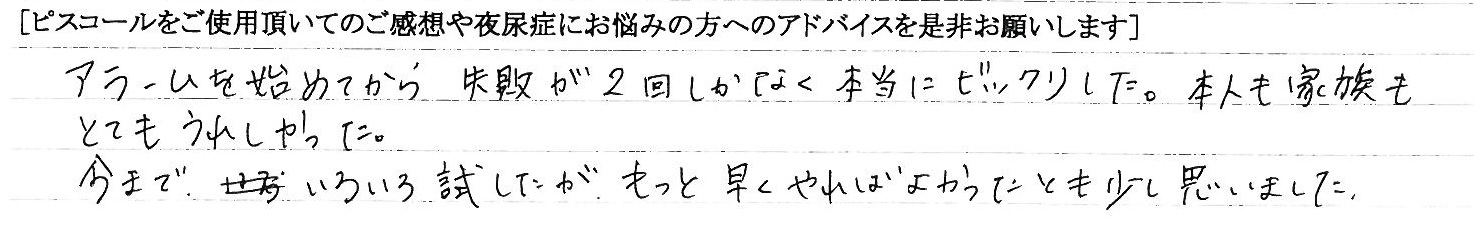 [ピスコールをご使用頂いてのご感想や夜尿症にお悩みの方へのアドバイスを是非お願いします]
アラームを始めてから 失敗が2回しかなく本当にビックリした。本人も家族も
とてもうれしかった。
今まで、いろいろ試したが、もっと早くやればよかったとも少し思いました。